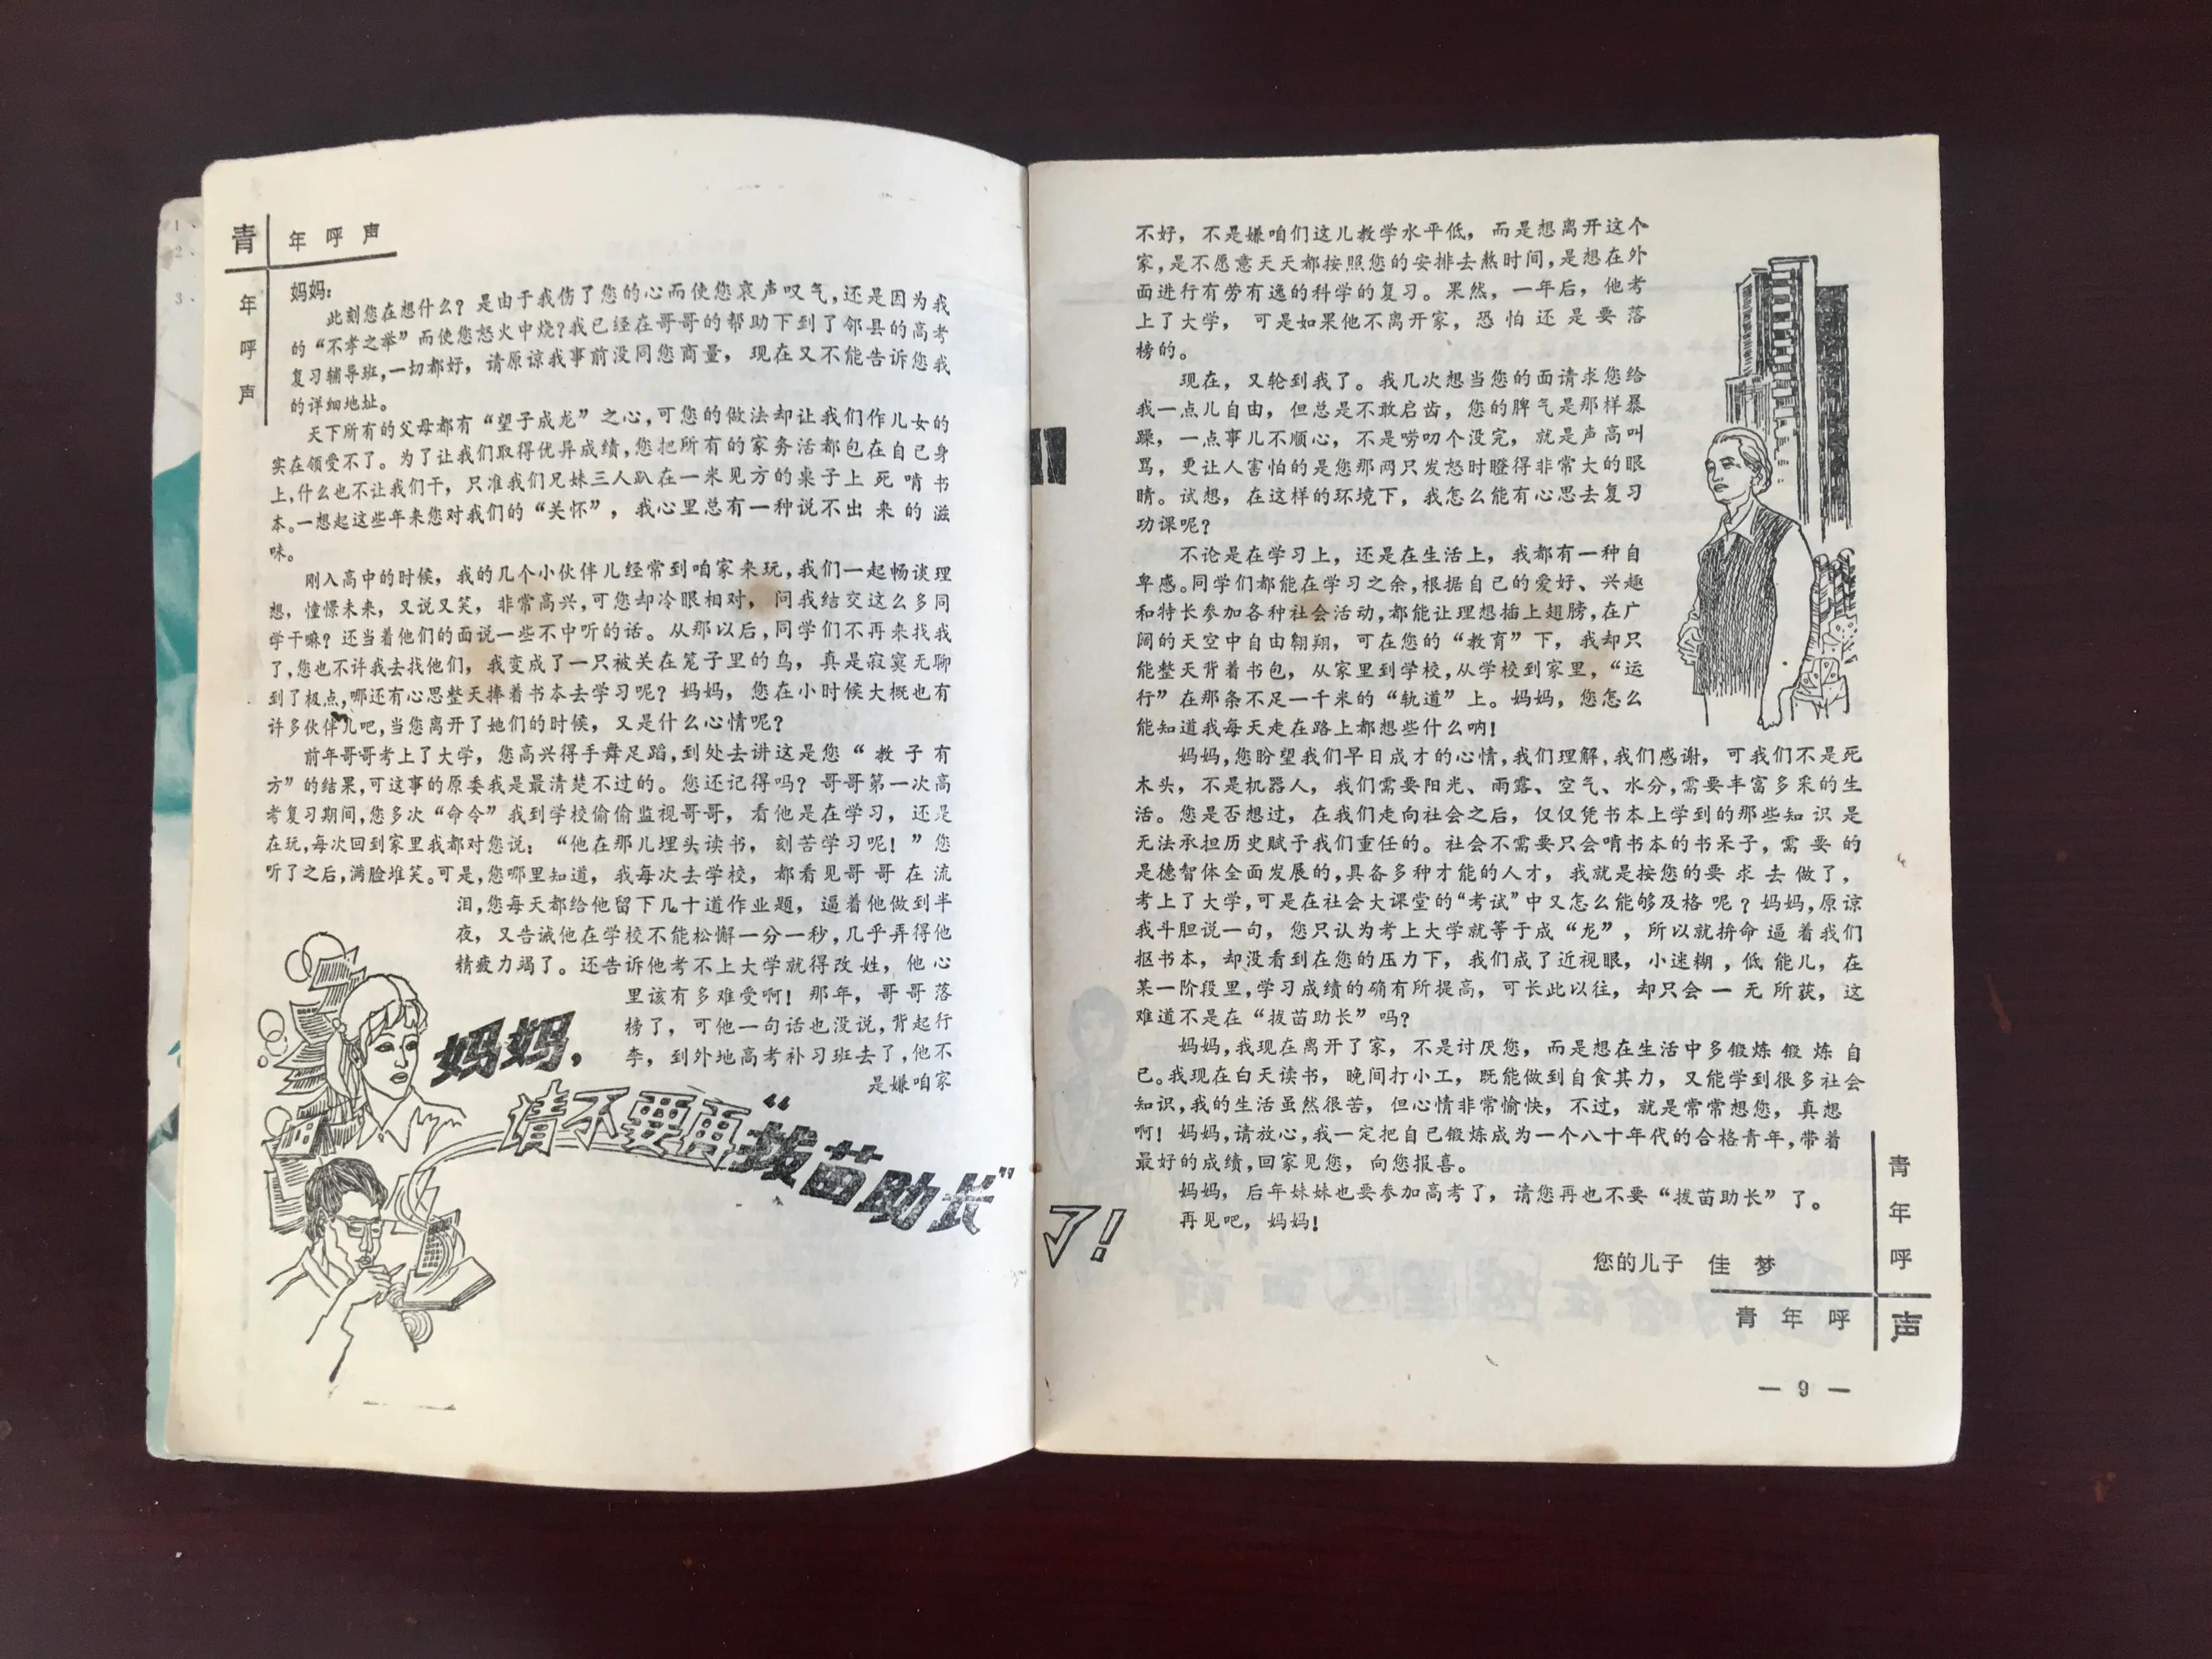 青年呼声
年
呼
声
妈妈：
此刻您在想什么？是由于我伤了您的心而使您哀声叹气，还是因为我
的“不孝之举”而使您怒火中烧？我已经在哥哥的帮助下到了邻县的高考
复习辅导班，一切都好，请原谅我事前没同您商量，现在又不能告诉您我
的详细地址。
天下所有的父母都有“望子成龙”之心，可您的做法却让我们作儿女的
实在领受不了。为了让我们取得优异成绩，您把所有的家务活都包在自己身
上，什么也不让我们干，只准我们兄妹三人趴在一米见方的桌子上死啃书
本。一想起这些年来您对我们的“关怀”，我心里总有一种说不出来的滋
味。
刚入高中的时候，我的几个小伙伴儿经常到咱家来玩，我们一起畅谈理
想，憧憬未来，又说又笑，非常高兴，可您却冷眼相对，问我结交这么多同
学干嘛？还当着他们的面说一些不中听的话。从那以后，同学们不再来找我
了，您也不许我去找他们，我变成了一只被关在笼子里的鸟，真是寂寞无聊
到了极点，哪还有心思整天捧着书本去学习呢？妈妈，您在小时候大概也有
许多伙伴儿吧，当您离开了她们的时候，又是什么心情呢？
前年哥哥考上了大学，您高兴得手舞足蹈，到处去讲这是您“教子有
方”的结果，可这事的原委我是最清楚不过的。您还记得吗？哥哥第一次高
考复习期间，您多次“命令”我到学校偷偷监视哥哥，看他是在学习，还是
在玩，每次回到家里我都对您说：“他在那儿埋头读书，刻苦学习呢！”您
听了之后，满脸堆笑。可是，您哪里知道，我每次去学校，都看见哥哥在流
泪，您每天都给他留下几十道作业题，逼着他做到半
夜，又告诫他在学校不能松懈一分一秒，几乎弄得他
精疲力竭了。还告诉他考不上大学就得改姓，他心
里该有多难受啊！那年，哥哥落
榜了，可他一句话也没说，背起行
李，到外地高考补习班去了，他不
是嫌咱家
妈妈，
请不要再“拔苗助长”
了！
不好，不是嫌咱们这儿教学水平低，而是想离开这个
家，是不愿意天天都按照您的安排去熬时间，是想在外
面进行有劳有逸的科学的复习。果然，一年后，他考
上了大学，可是如果他不离开家，恐怕还是要落
榜的。
现在，又轮到我了。我几次想当您的面请求您给
我一点儿自由，但总是不敢启齿，您的脾气是那样暴
躁，一点事儿不顺心，不是唠叨个没完，就是声高叫
骂，更让人害怕的是您那两只发怒时瞪得非常大的眼
睛。试想，在这样的环境下，我怎么能有心思去复习
功课呢？
不论是在学习上，还是在生活上，我都有一种自
卑感。同学们都能在学习之余，根据自己的爱好、兴趣
和特长参加各种社会活动，都能让理想插上翅膀，在广
阔的天空中自由翱翔，可在您的“教育”下，我却只
能整天背着书包，从家里到学校，从学校到家里，“运
行”在那条不足一千米的“轨道”上。妈妈，您怎么
能知道我每天走在路上都想些什么呐！
妈妈，您盼望我们早日成才的心情，我们理解，我们感谢，可我们不是死
木头，不是机器人，我们需要阳光、雨露、空气、水分，需要丰富多采的生
活。您是否想过，在我们走向社会之后，仅仅凭书本上学到的那些知识是
无法承担历史赋予我们重任的。社会不需要只会啃书本的书呆子，需要的
是德智体全面发展的，具备多种才能的人才，我就是按您的要求去做了，
考上了大学，可是在社会大课堂的“考试”中又怎么能够及格呢？妈妈，原谅
我斗胆说一句，您只认为考上大学就等于成“龙”，所以就拚命逼着我们
抠书本，却没看到在您的压力下，我们成了近视眼，小迷糊，低能儿，在
某一阶段里，学习成绩的确有所提高，可长此以往，却只会一无所获，这
难道不是在“拔苗助长”吗？
妈妈，我现在离开了家，不是讨厌您，而是想在生活中多锻炼锻炼自
己。我现在白天读书，晚间打小工，既能做到自食其力，又能学到很多社会
知识，我的生活虽然很苦，但心情非常愉快，不过，就是常常想您，真想
啊！妈妈，请放心，我一定把自己锻炼成为一个八十年代的合格青年，带着
最好的成绩，回家见您，向您报喜。
妈妈，后年妹妹也要参加高考了，请您再也不要“拔苗助长”了。
再见吧，妈妈！
您的儿子 佳 梦
青
年
呼
青年呼声
— 9 —